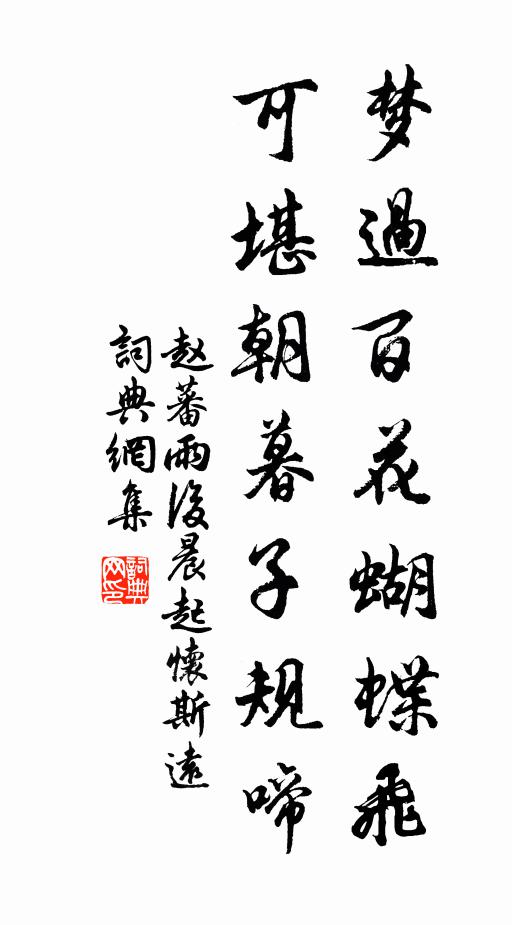 梦過百花蝴蝶飛
可堪朝暮子規啼
赵蕃雨後晨起懷斯遠
詞典網集
詞典网印